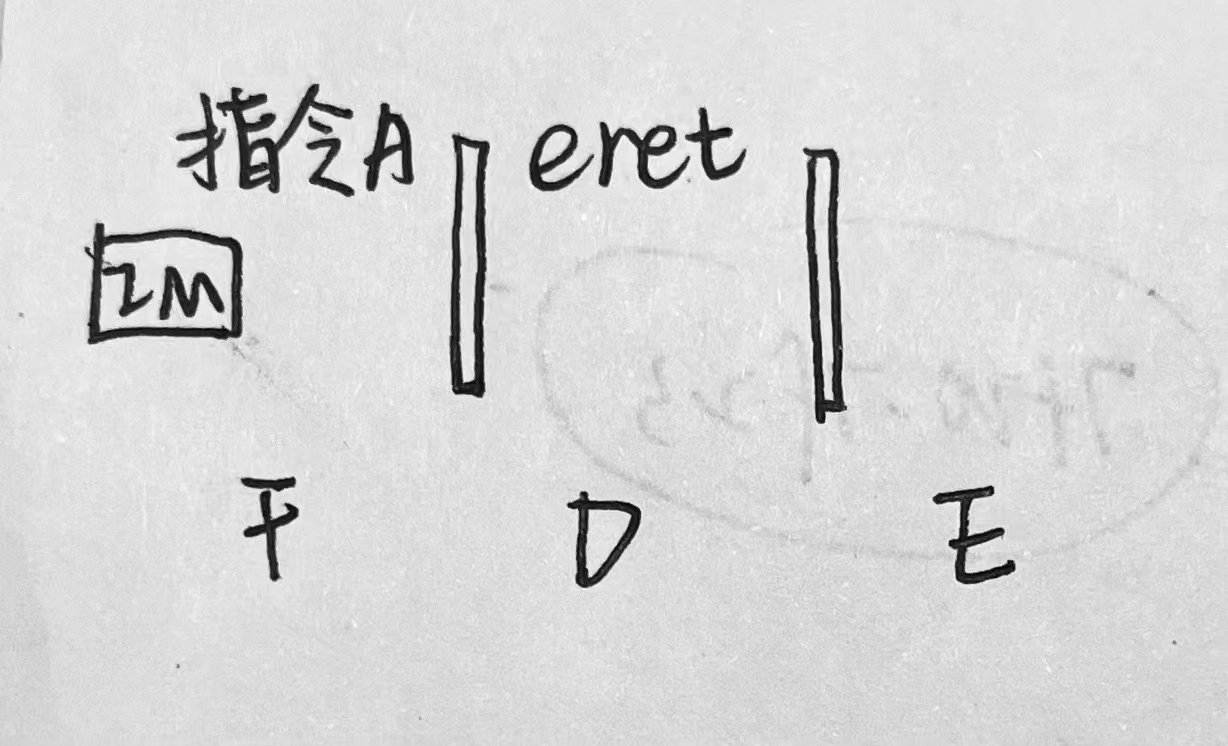 指令A eret
IM
F D E